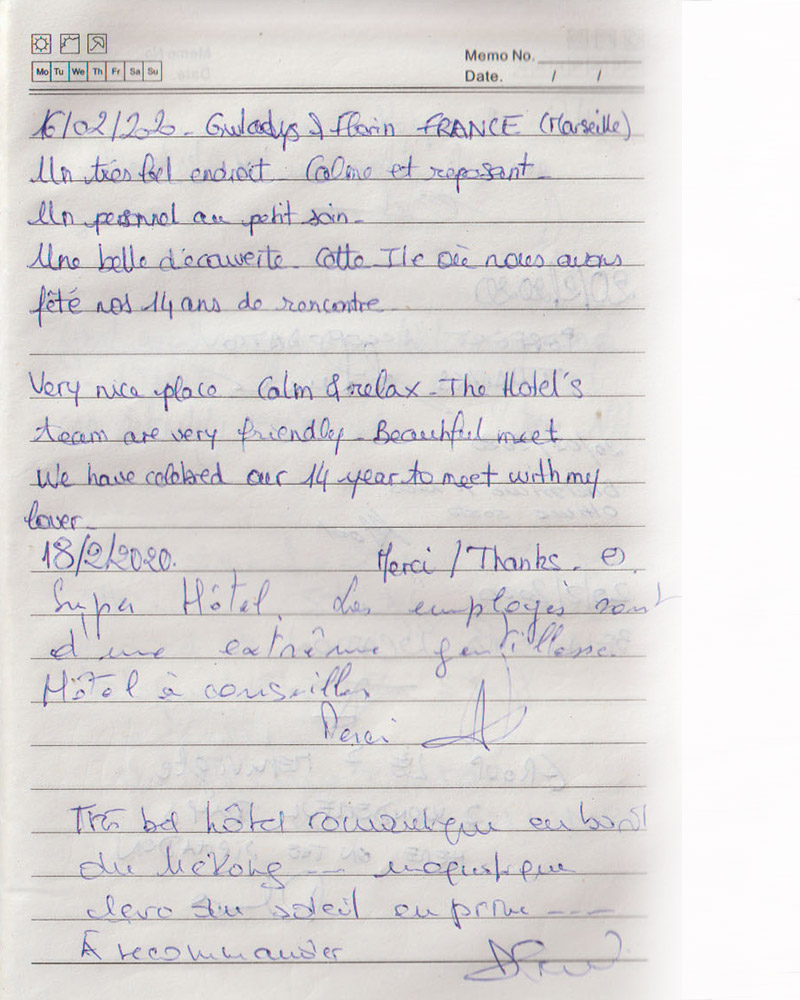 Memo No.
Mo Tu We Th Fr Sa Su
Date. / /
16/02/2020 - Gwladys & Florin FRANCE (Marseille)
Un très bel endroit. Calme et reposant.
Un personnel au petit soin.
Une belle découverte. Cette Ile où nous avons
fêté nos 14 ans de rencontre
Very nice place. Calm & relax. The Hotel's
team are very friendly. Beautiful meet
We have our 14 year to meet with my
lover.
18/2/2020. Merci / Thanks.
Super Hôtel. Les employés sont
d'une extrême gentillesse.
Hôtel à conseiller
Merci
Très bel hôtel romantique au bord
du Mékong --- magnifique
du soleil en prime ---
À recommander